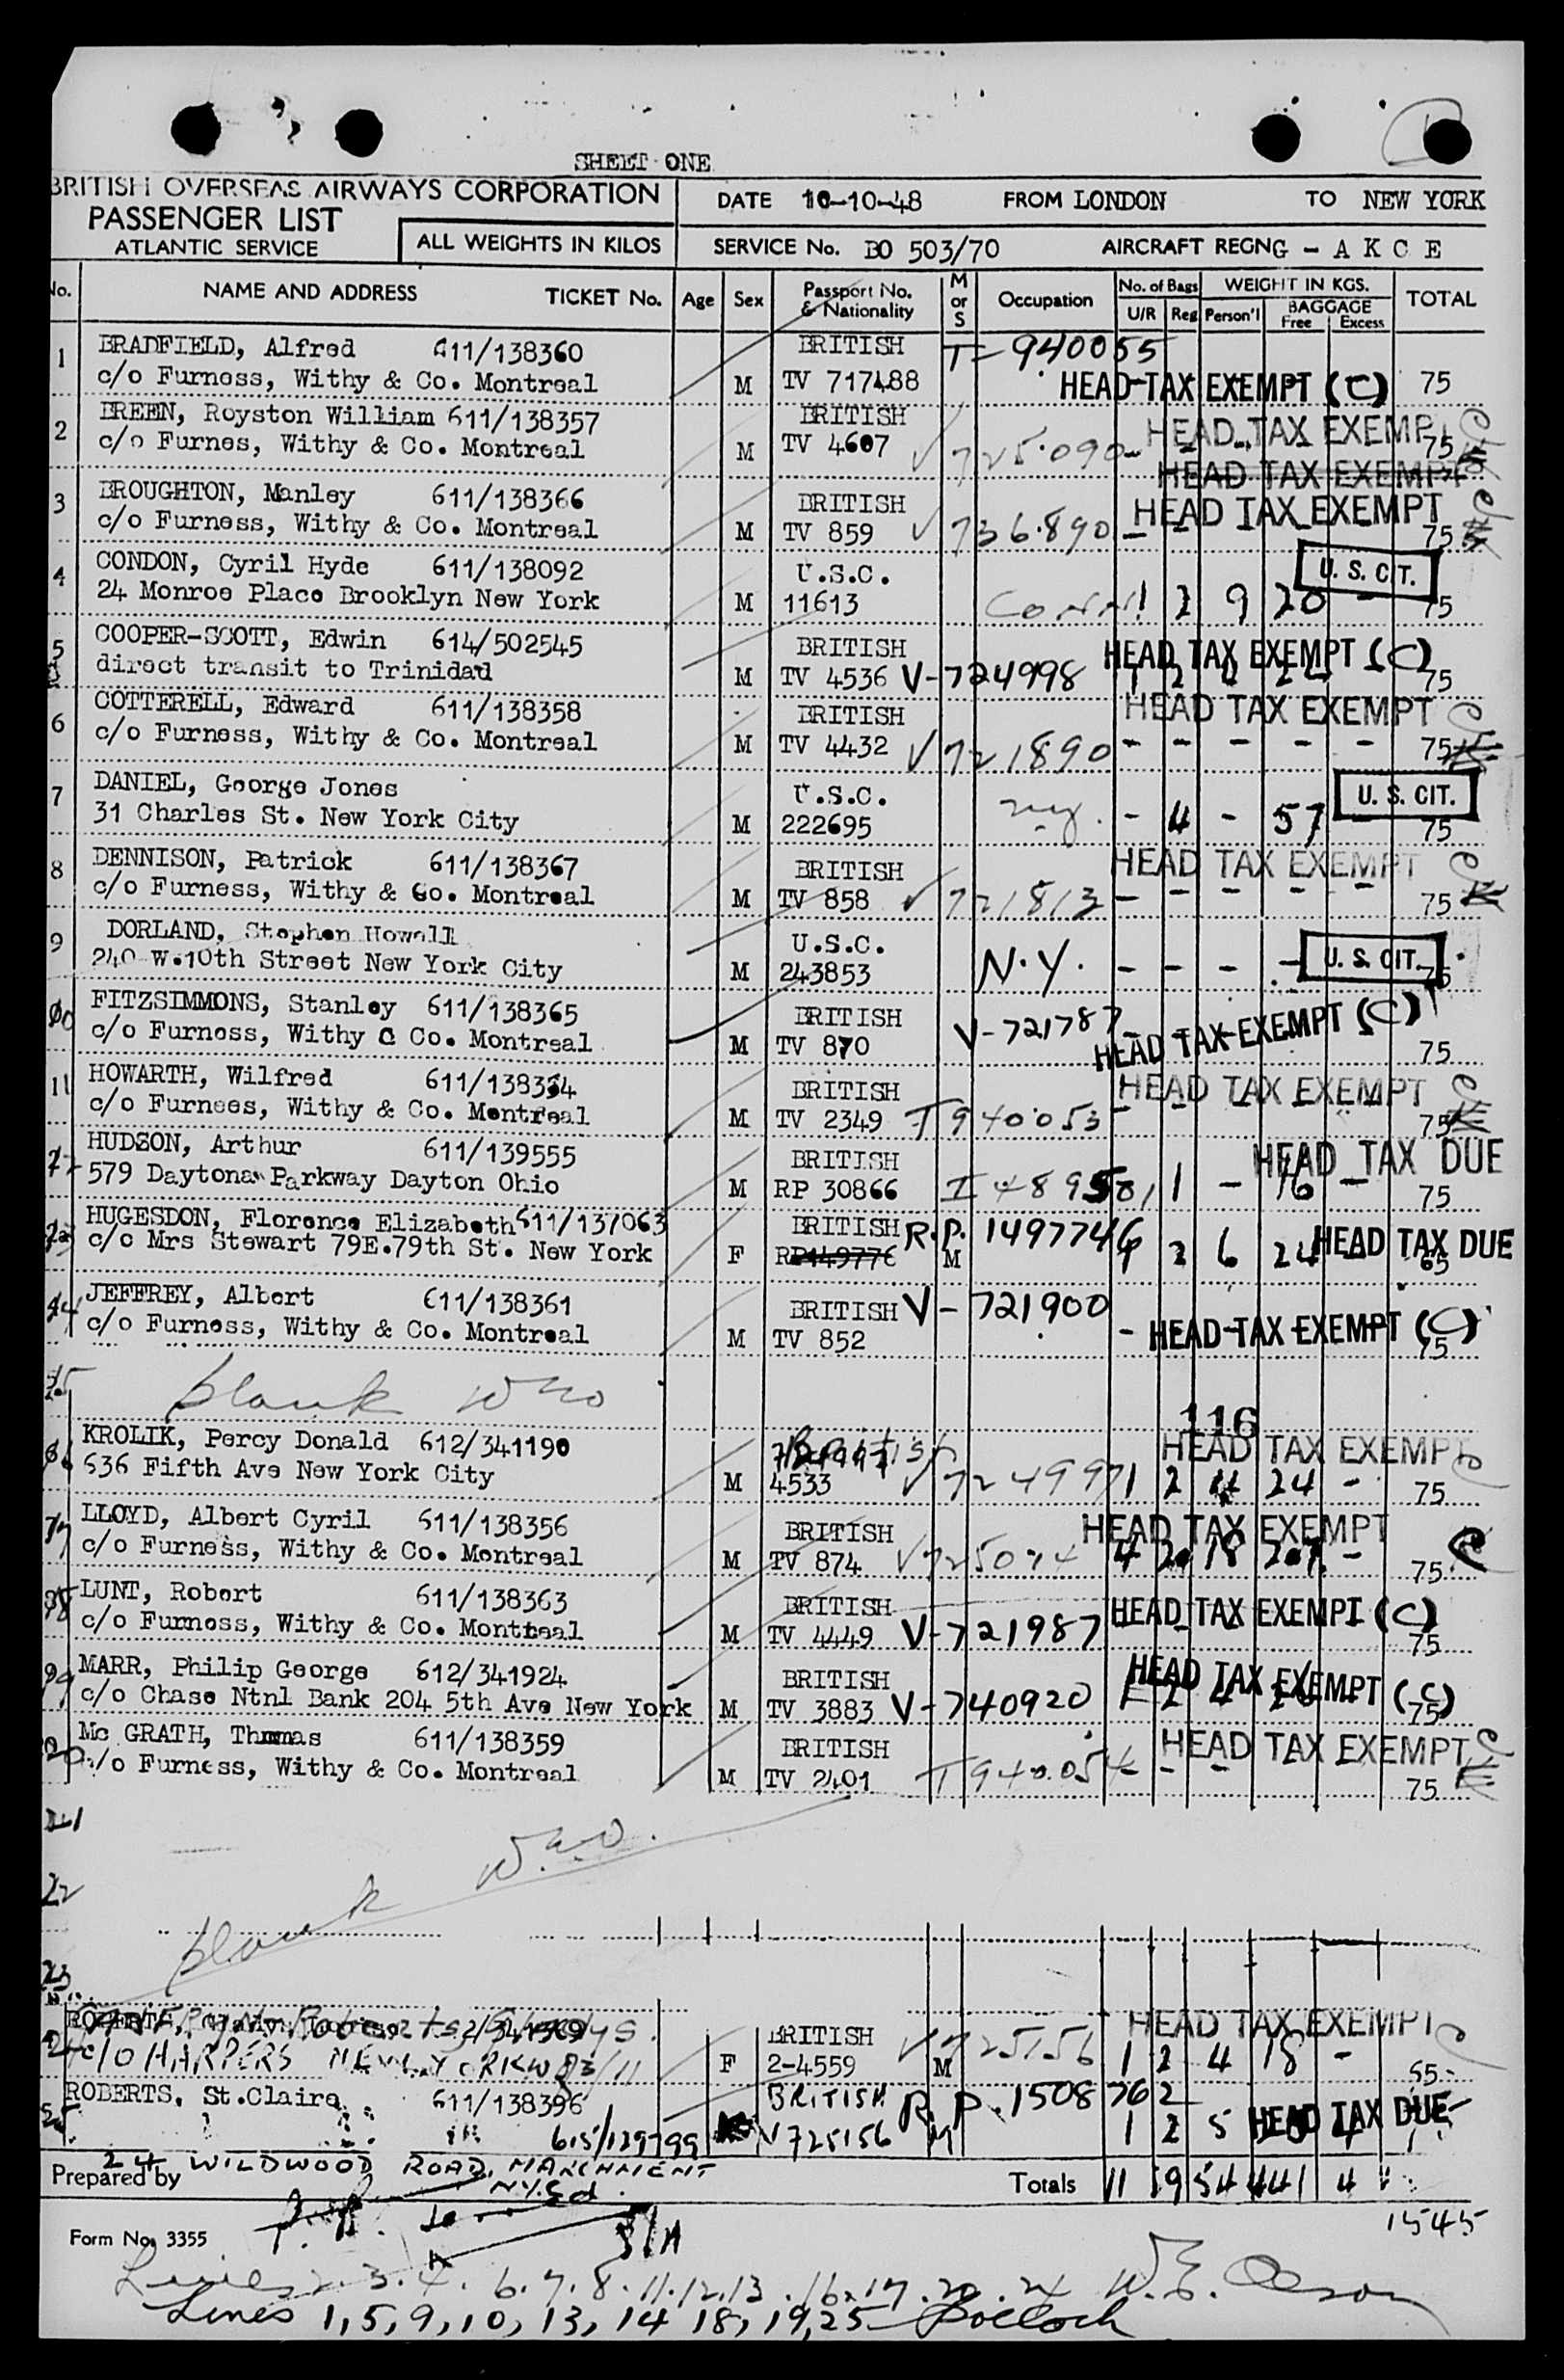 SHEET ONE
BRITISH OVERSEAS AIRWAYS CORPORATION
PASSENGER LIST
ATLANTIC SERVICE
ALL WEIGHTS IN KILOS
DATE 10-10-48 FROM LONDON TO NEW YORK
SERVICE No. BO 503/70 AIRCRAFT REGN G - A K C E
No. NAME AND ADDRESS TICKET No. Age Sex Passport No. & Nationality M or S Occupation No. of Bags U/R Reg WEIGHT IN KGS. Person'l BAGGAGE Free Excess TOTAL
1 BRADFIELD, Alfred 611/138360 BRITISH T- 940055
c/o Furness, Withy & Co. Montreal M TV 717488 HEAD TAX EXEMPT (C) 75
2 BREEN, Royston William 611/138357 BRITISH HEAD TAX EXEMPT
c/o Furnes, Withy & Co. Montreal M TV 4607 V 725.090 75
HEAD TAX EXEMPT
3 BROUGHTON, Manley 611/138366 BRITISH HEAD TAX EXEMPT
c/o Furness, Withy & Co. Montreal M TV 859 V 736.890 75
4 CONDON, Cyril Hyde 611/138092 U.S.C. U. S. CIT.
24 Monroe Place Brooklyn New York M 11613 Conn 1 2 9 20 - 75
5 COOPER-SCOTT, Edwin 614/502545 BRITISH HEAD TAX EXEMPT (C)
direct transit to Trinidad M TV 4536 V-724998 1 2 75
6 COTTERELL, Edward 611/138358 BRITISH HEAD TAX EXEMPT
c/o Furness, Withy & Co. Montreal M TV 4432 V 721890 - - - - - 75
7 DANIEL, George Jones U.S.C. U. S. CIT.
31 Charles St. New York City M 222695 ny. - 4 - 57 - 75
8 DENNISON, Patrick 611/138367 BRITISH HEAD TAX EXEMPT
c/o Furness, Withy & Co. Montreal M TV 858 V 721813 - - - - - 75
9 DORLAND, Stephen Howell U.S.C. U. S. CIT.
240 W.10th Street New York City M 243853 N.Y. - - - - 75
10 FITZSIMMONS, Stanley 611/138365 BRITISH V-721787
c/o Furness, Withy & Co. Montreal M TV 870 HEAD TAX EXEMPT (C) 75
11 HOWARTH, Wilfred 611/138354 BRITISH HEAD TAX EXEMPT
c/o Furnees, Withy & Co. Montreal M TV 2349 T 940053 75
12 HUDSON, Arthur 611/139555 BRITISH HEAD TAX DUE
579 Daytona Parkway Dayton Ohio M RP 30866 I 489501 1 - 16 - 75
13 HUGESDON, Florence Elizabeth 611/137063 BRITISH R.P. 1497746
c/o Mrs Stewart 79E.79th St. New York F RP149776 M 2 6 24 HEAD TAX DUE 65
14 JEFFREY, Albert 611/138361 BRITISH V-721900
c/o Furness, Withy & Co. Montreal M TV 852 - HEAD TAX EXEMPT (C) 75
15 blank
116
16 KROLIK, Percy Donald 612/341190 British HEAD TAX EXEMPT
636 Fifth Ave New York City M 4533 V 724997 1 2 4 24 - 75
17 LLOYD, Albert Cyril 611/138356 BRITISH HEAD TAX EXEMPT
c/o Furness, Withy & Co. Montreal M TV 874 V 725074 75
18 LUNT, Robert 611/138363 BRITISH HEAD TAX EXEMPT (C)
c/o Furness, Withy & Co. Montreal M TV 4449 V-721987 75
19 MARR, Philip George 612/341924 BRITISH HEAD TAX EXEMPT (C)
c/o Chase Ntnl Bank 204 5th Ave New York M TV 3883 V-740920 75
20 Mc GRATH, Thomas 611/138359 BRITISH HEAD TAX EXEMPT
c/o Furness, Withy & Co. Montreal M TV 2401 T 940.054 - - - 75
21
22
blank
23
24 ROBERTS, BRITISH V 725156 HEAD TAX EXEMPT
c/o HARPERS NEW YORK F 2-4559 M 1 2 4 18 - 65
25 ROBERTS, St.Claire 611/138396 BRITISH R.P. 1508762
615/129799 V 725156 M 1 2 5 HEAD TAX DUE
24 WILDWOOD ROAD,
Prepared by Totals 11 19 54 441 4
1545
Form No. 3355
Lines 2.3.4.6.7.8.11.12.13.16.17.20.24 W.E. Olson
Lines 1, 5, 9, 10, 13, 14 18, 19, 25 Bolloch